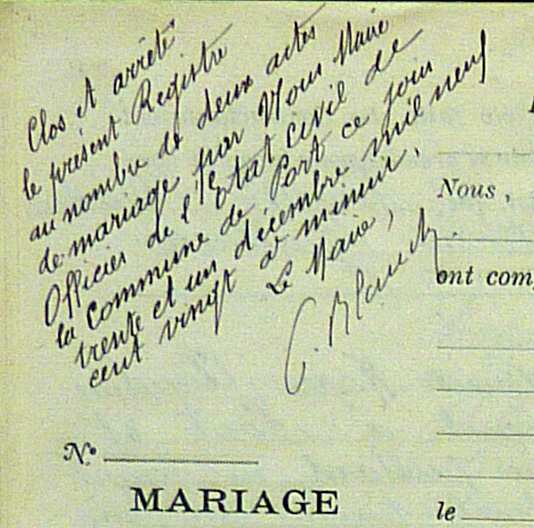 Clos et arrêté
le présent Registre
au nombre de deux actes
de mariage par Nous Maire
Officier de l'Etat Civil de
la Commune de Port ce jour
trente et un décembre mil neuf
cent vingt à minuit,
Le Maire,
C. Blanch.
Nous,
ont com
N°
MARIAGE
le